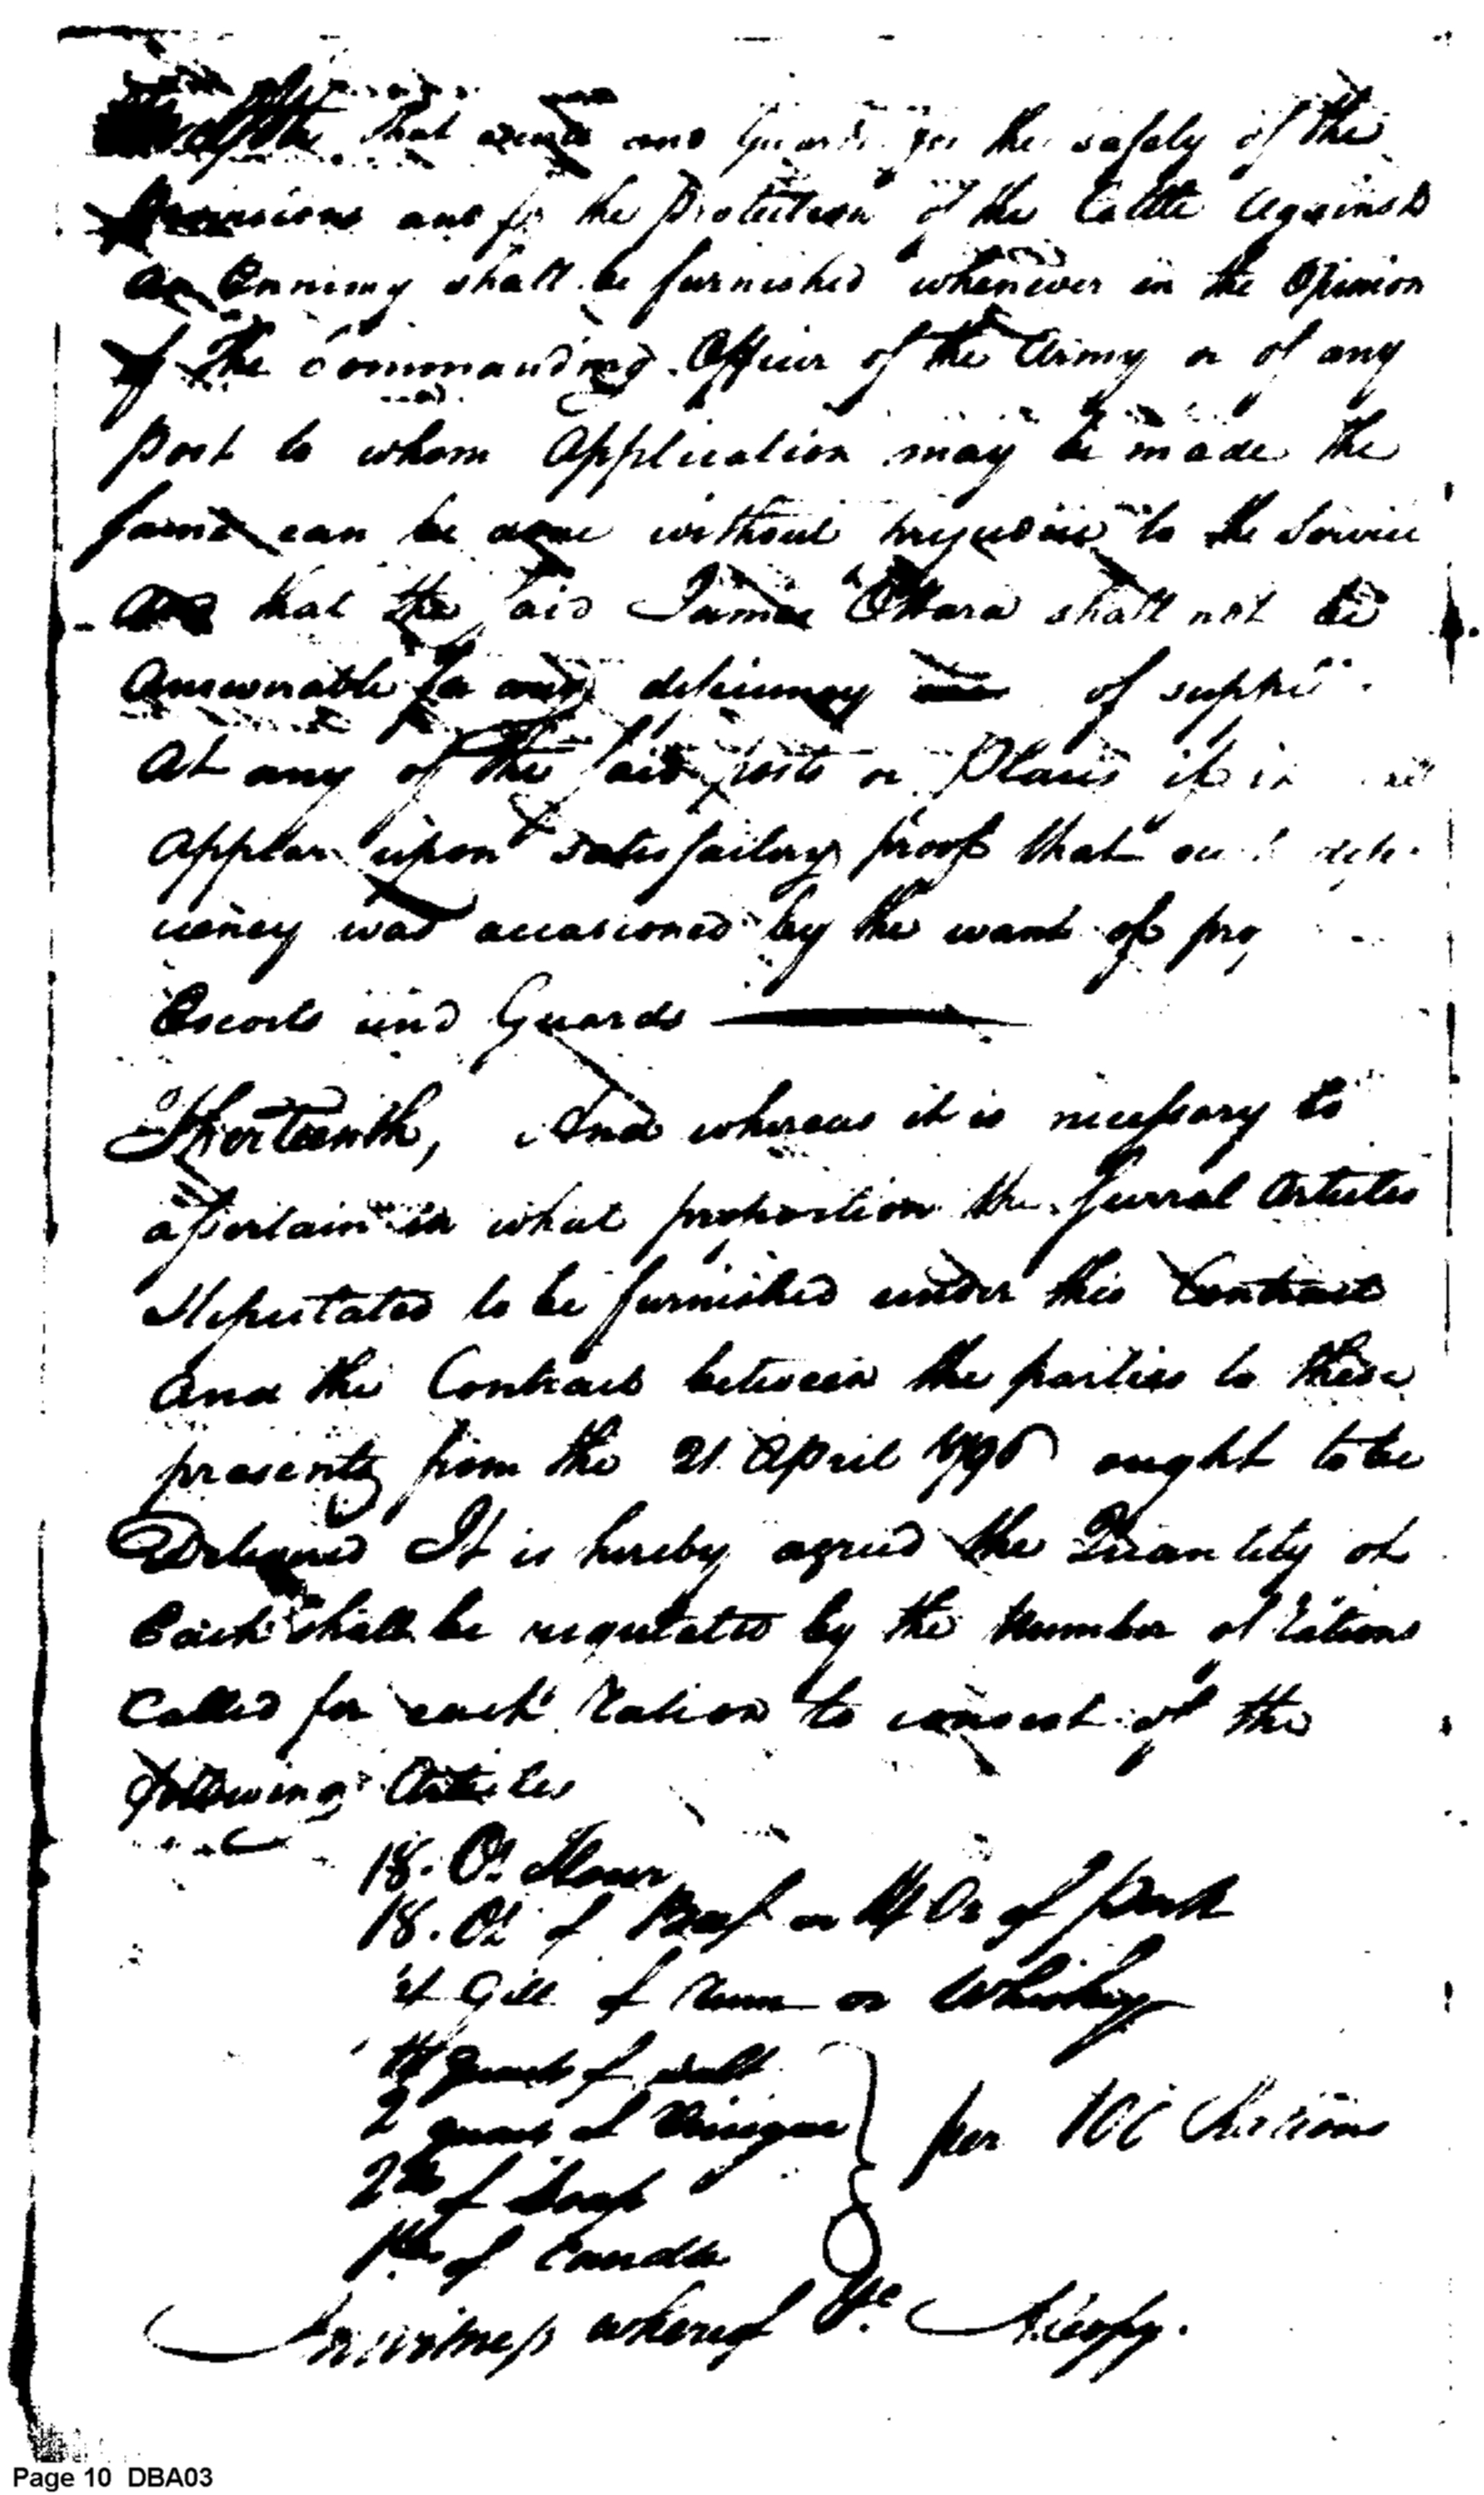 that and Guards for the safety of the
Provisions and for the Protection of the Cattle Against
an Ennimy shall be furnished whenever in the Opinion
of the Commanding Officer of the Army or of any
post to whom Application may be made the
same can be done without injusice to the Service
And that the said James OHara shall not be
Answerable for any deficiency of supplies
At any of the said posts or Places if it
Appear upon satisfactory proof that such defi
ciency was occasioned by the want of
Escorts and Guards
Thirteenth, And whereas it is necessary to
assertain in what proportion the several Articles
Stipulated to be furnished under this Contract
And the Contract between the parties to these
presents from the 21 April 1790 ought to be
Delivered It is hereby agreed the Quantity of
Each shall be regulated by the Number of Rations
Called for each Ration to consist of the
following Articles
18. Oz Flour
18. Oz of Beef or 14 Oz of pork
1 Gill of Rum or Whisky
1 Quart of salt
2 quarts of Vinigar per 100 Rations
2 lb of Soap
1 lb of Candles
In witness whereof &c A Copy.
Page 10 DBA03